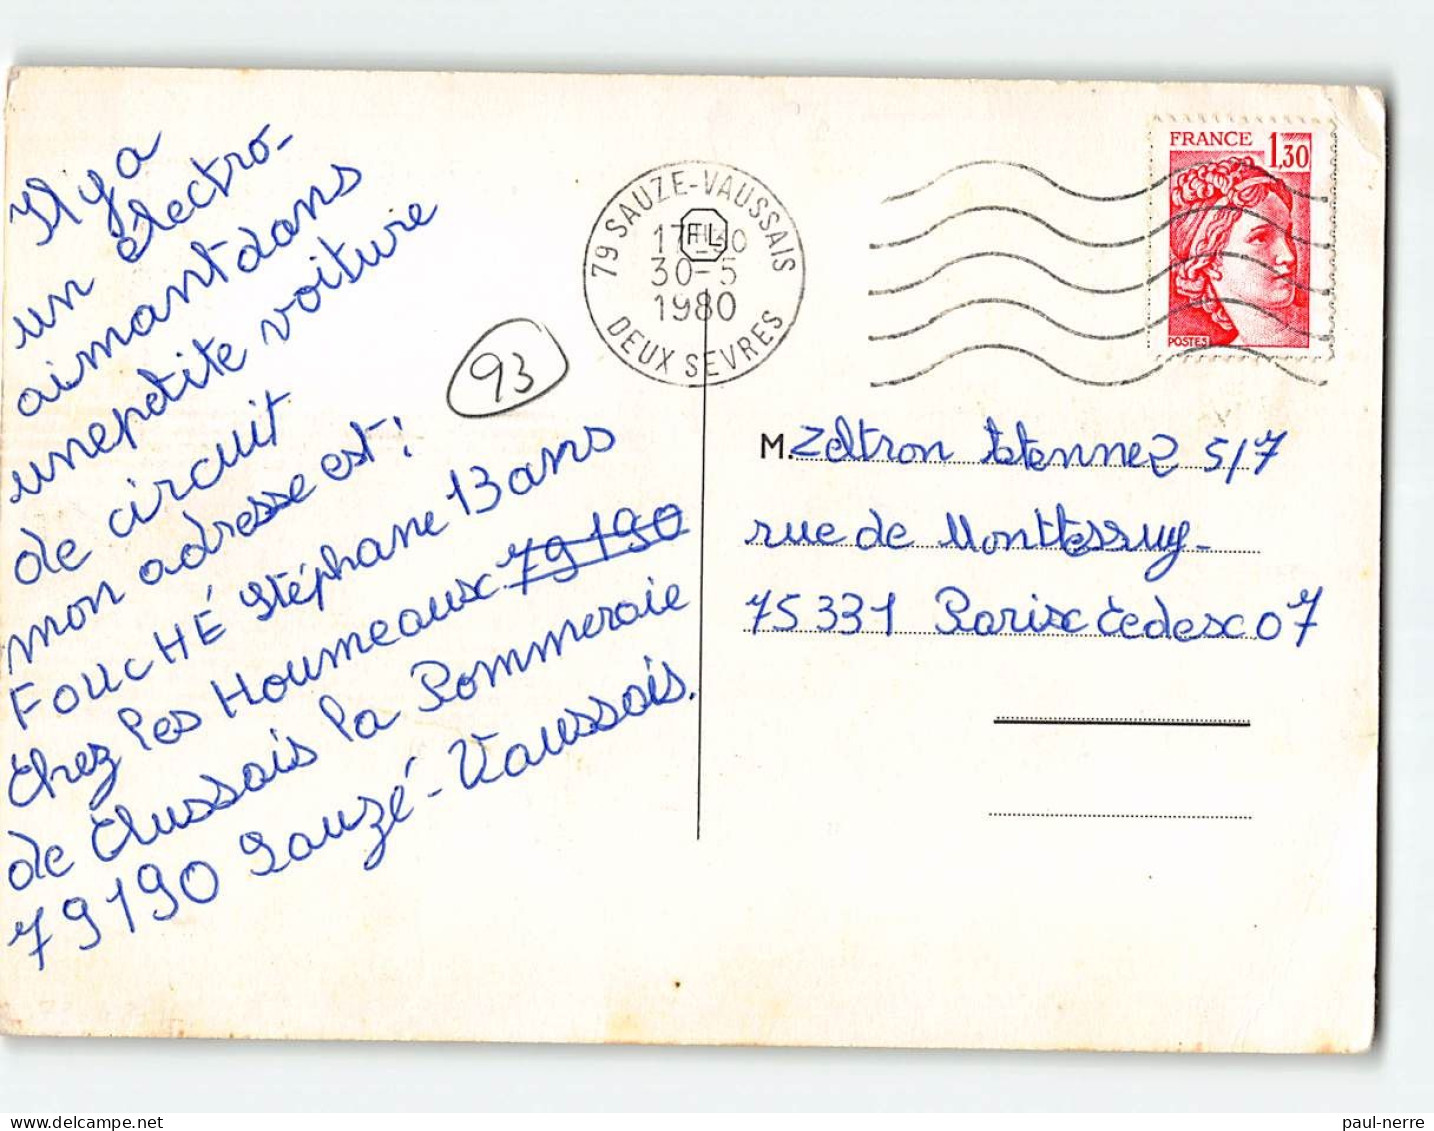 Il y a
un électro-
aimant dans
une petite voiture
de circuit
mon adresse est :
FOUCHÉ Stéphane 13 ans
Chez les Houmeaux 79190
de Clussais la Pommeraie
79190 Sauzé-Vaussais.
93
79 SAUZE-VAUSSAIS
17 30
30-5
1980
DEUX SEVRES
FRANCE 1,30
POSTES
M. Zeltron 5/7
rue de Monttessuy
75331 Parix Cedex 07
paul-nerre